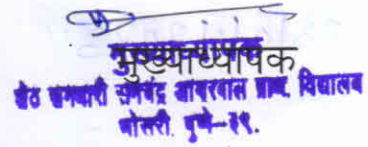 मुख्याध्यापक
शेठ रामधारी रामचंद्र आगरवाल प्राथ. विद्यालय
भोसरी पुणे-३९.